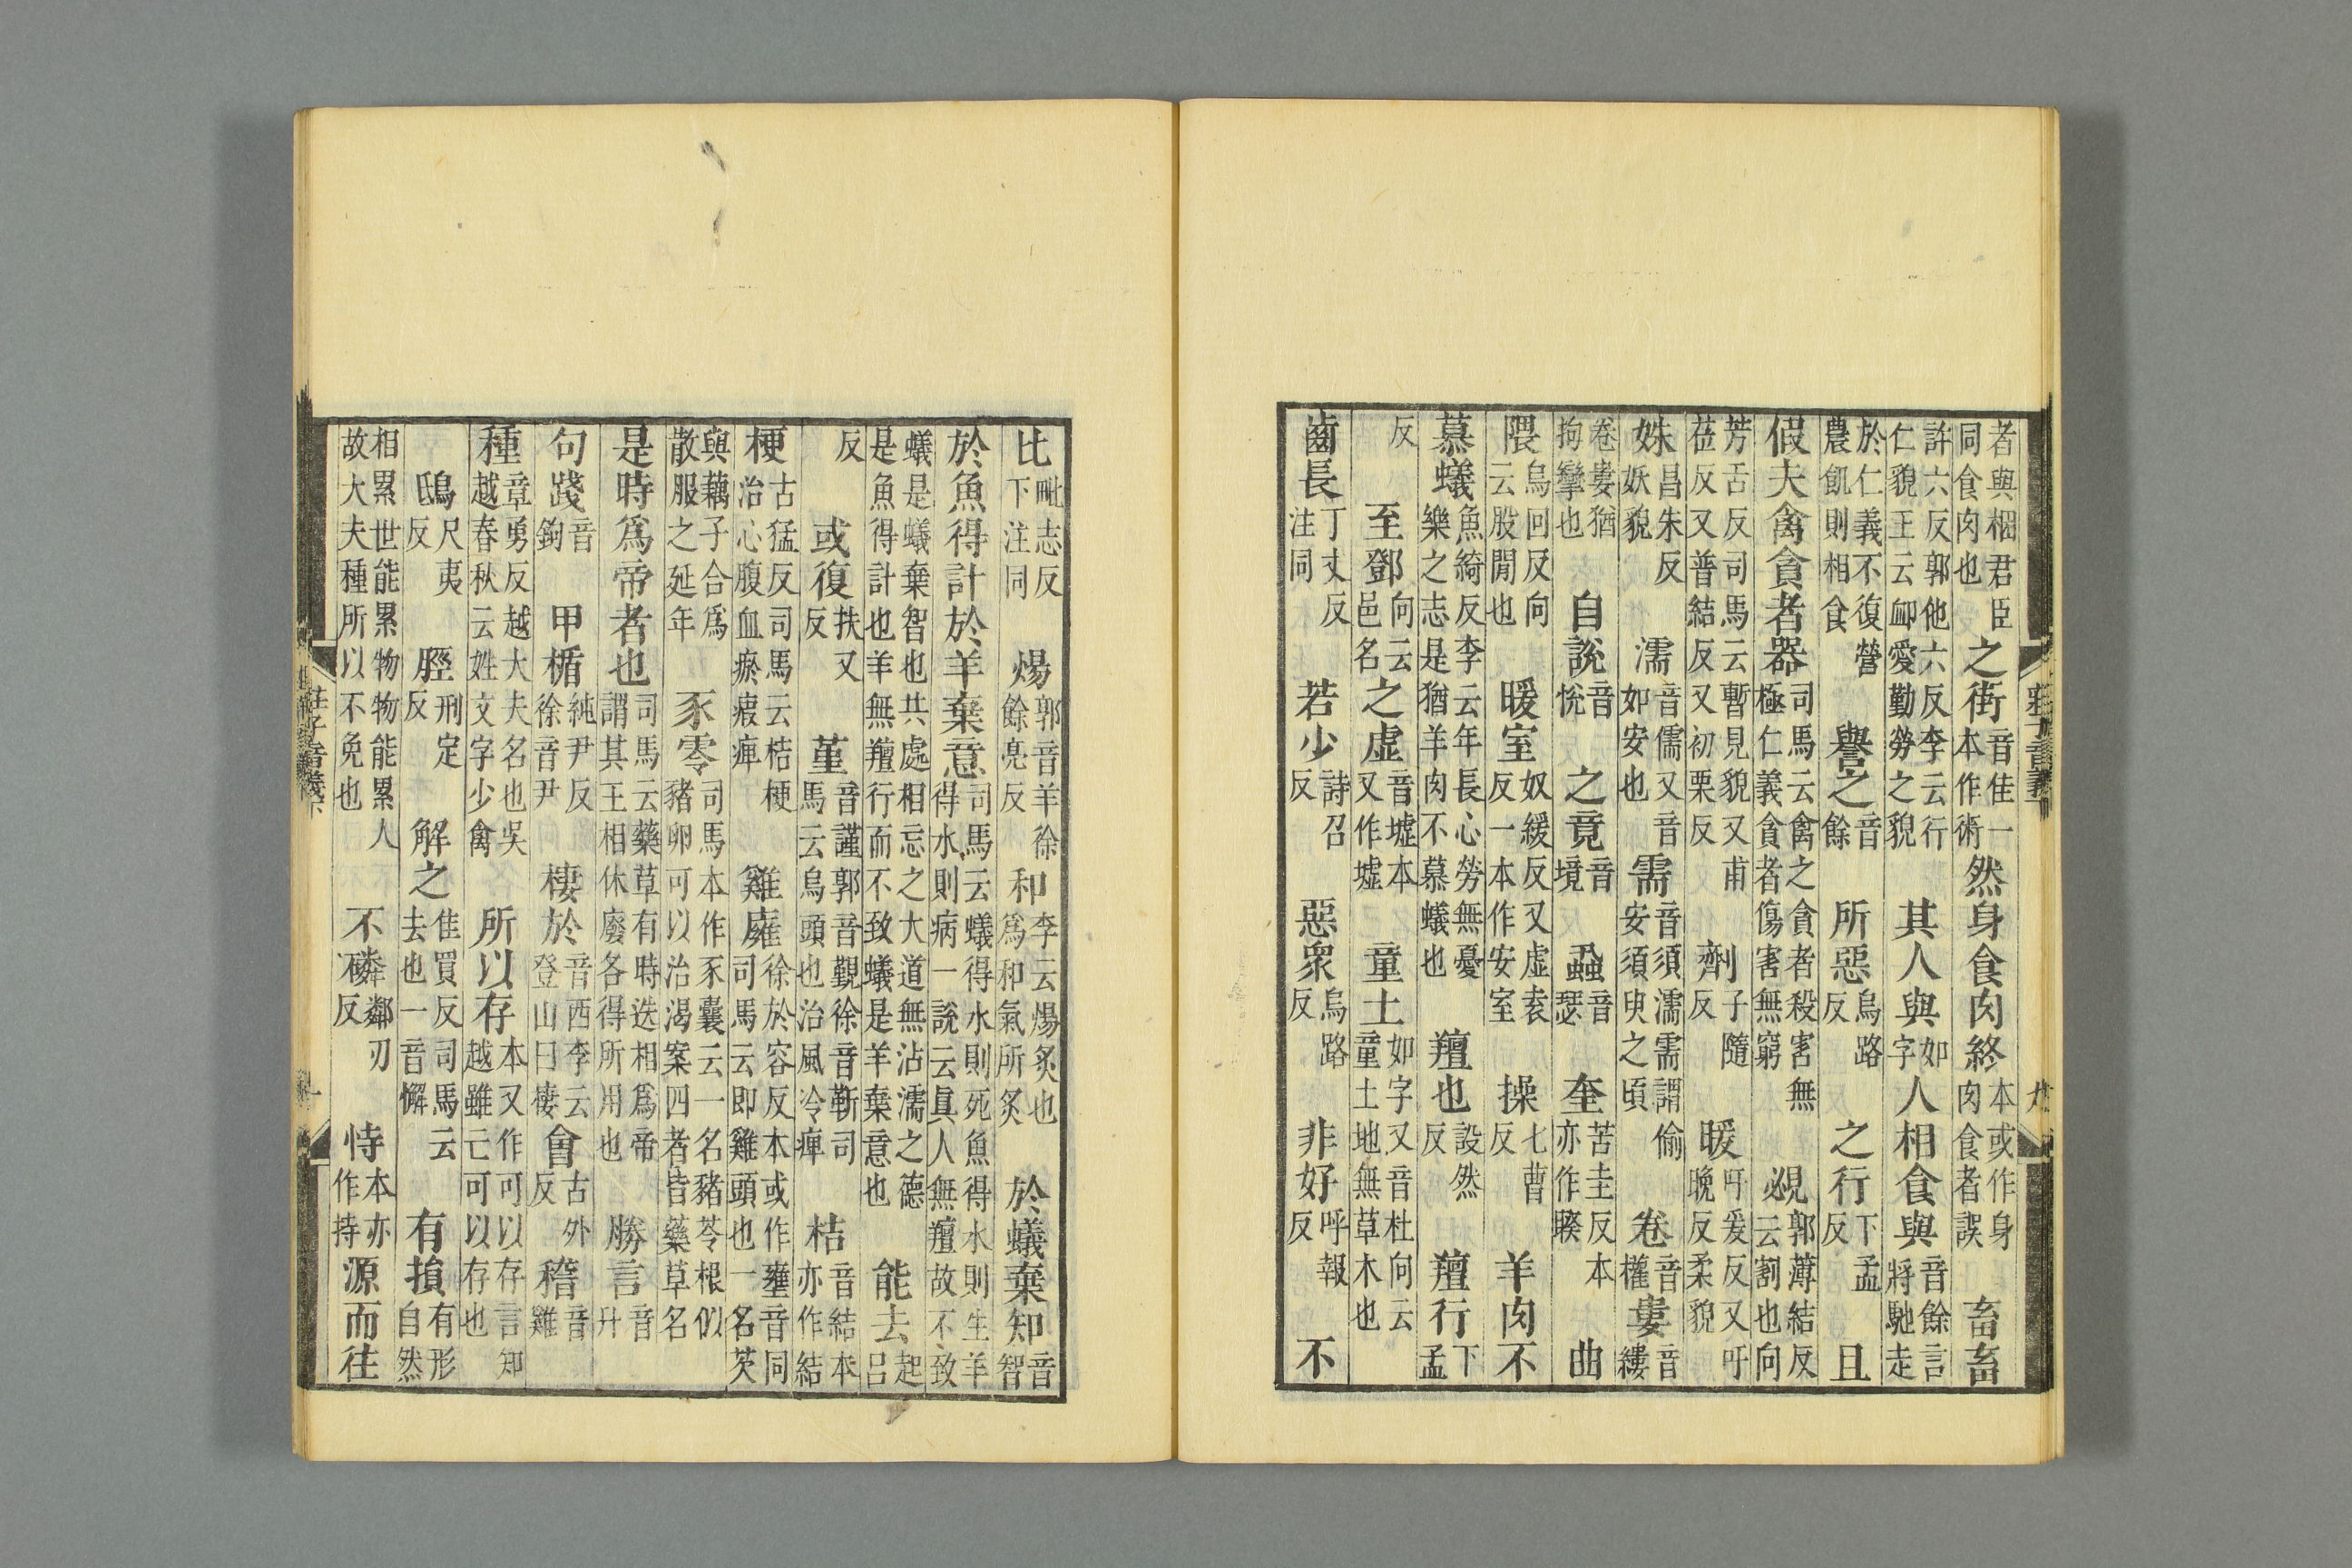 者與棞君臣同食肉也之街音佳一本作術然身食肉終本或作身肉食者誤畜畜
許六反郭他六反李云行仁貌王云卹愛勤勞之貌其人與如字人相食與音餘言將馳走
於仁義不復營農飢則相食譽之音餘所惡烏路反之行下孟反且
假夫禽貪者器司馬云禽之貪者殺害無極仁義貪者傷害無窮覕郭薄結反云割也向
芳舌反司馬云暫見貌又甫莅反又普結反又初栗反劑子隨反暖吁爰反又吁晚反柔貌
姝昌朱反妖貌濡音儒又音如安也需音須濡需謂偷安須臾之頃卷音權婁音縷
卷婁猶拘攣也自說音悅之竟音境蝨音瑟奎苦圭反本亦作睽曲
隈烏回反向云股閒也暖室奴緩反又虛袁反一本作安室操七曹反羊肉不
慕蟻魚綺反李云年長心勞無憂樂之志是猶羊肉不慕蟻也羶也設然反羶行下孟
反至鄧向云邑名之虛音墟本又作墟童土如字又音杜向云童土地無草木也
齒長丁丈反注同若少詩召反惡衆烏路反非好呼報反不
比毗志反下注同煬郭音羊徐餘亮反和李云煬炙也爲和氣所炙於蟻棄知音智
於魚得計於羊棄意司馬云蟻得水則死魚得水則生羊得水則病一說云真人無羶故不致
蟻是蟻棄智也共處相忘之大道無沾濡之德是魚得計也羊無羶行而不致蟻是羊棄意也能去起呂
反或復扶又反堇音謹郭音覲徐音靳司馬云烏頭也治風冷痺桔音結本亦作結
梗古猛反司馬云桔梗治心腹血瘀瘕痺雞廱徐於容反本或作壅音同司馬云即雞頭也一名芡
與藕子合爲散服之延年豕零司馬本作豕囊云一名豬苓根似豬卵可以治渴案四者皆藥草名
是時爲帝者也司馬云藥草有時迭相爲帝謂其王相休廢各得所用也勝言音升
句踐音鉤甲楯純尹反徐音尹棲於音西李云登山曰棲會古外反稽音雞
種章勇反越大夫名也吳越春秋云姓文字少禽所以存本又作可以存言知越雖亡可以存也
鴟尺夷反脛刑定反解之佳買反司馬云去也一音懈有損有形自然
相累世能累物物能累人故大夫種所以不免也不磷鄰刃反恃本亦作持源而往
莊子音義下